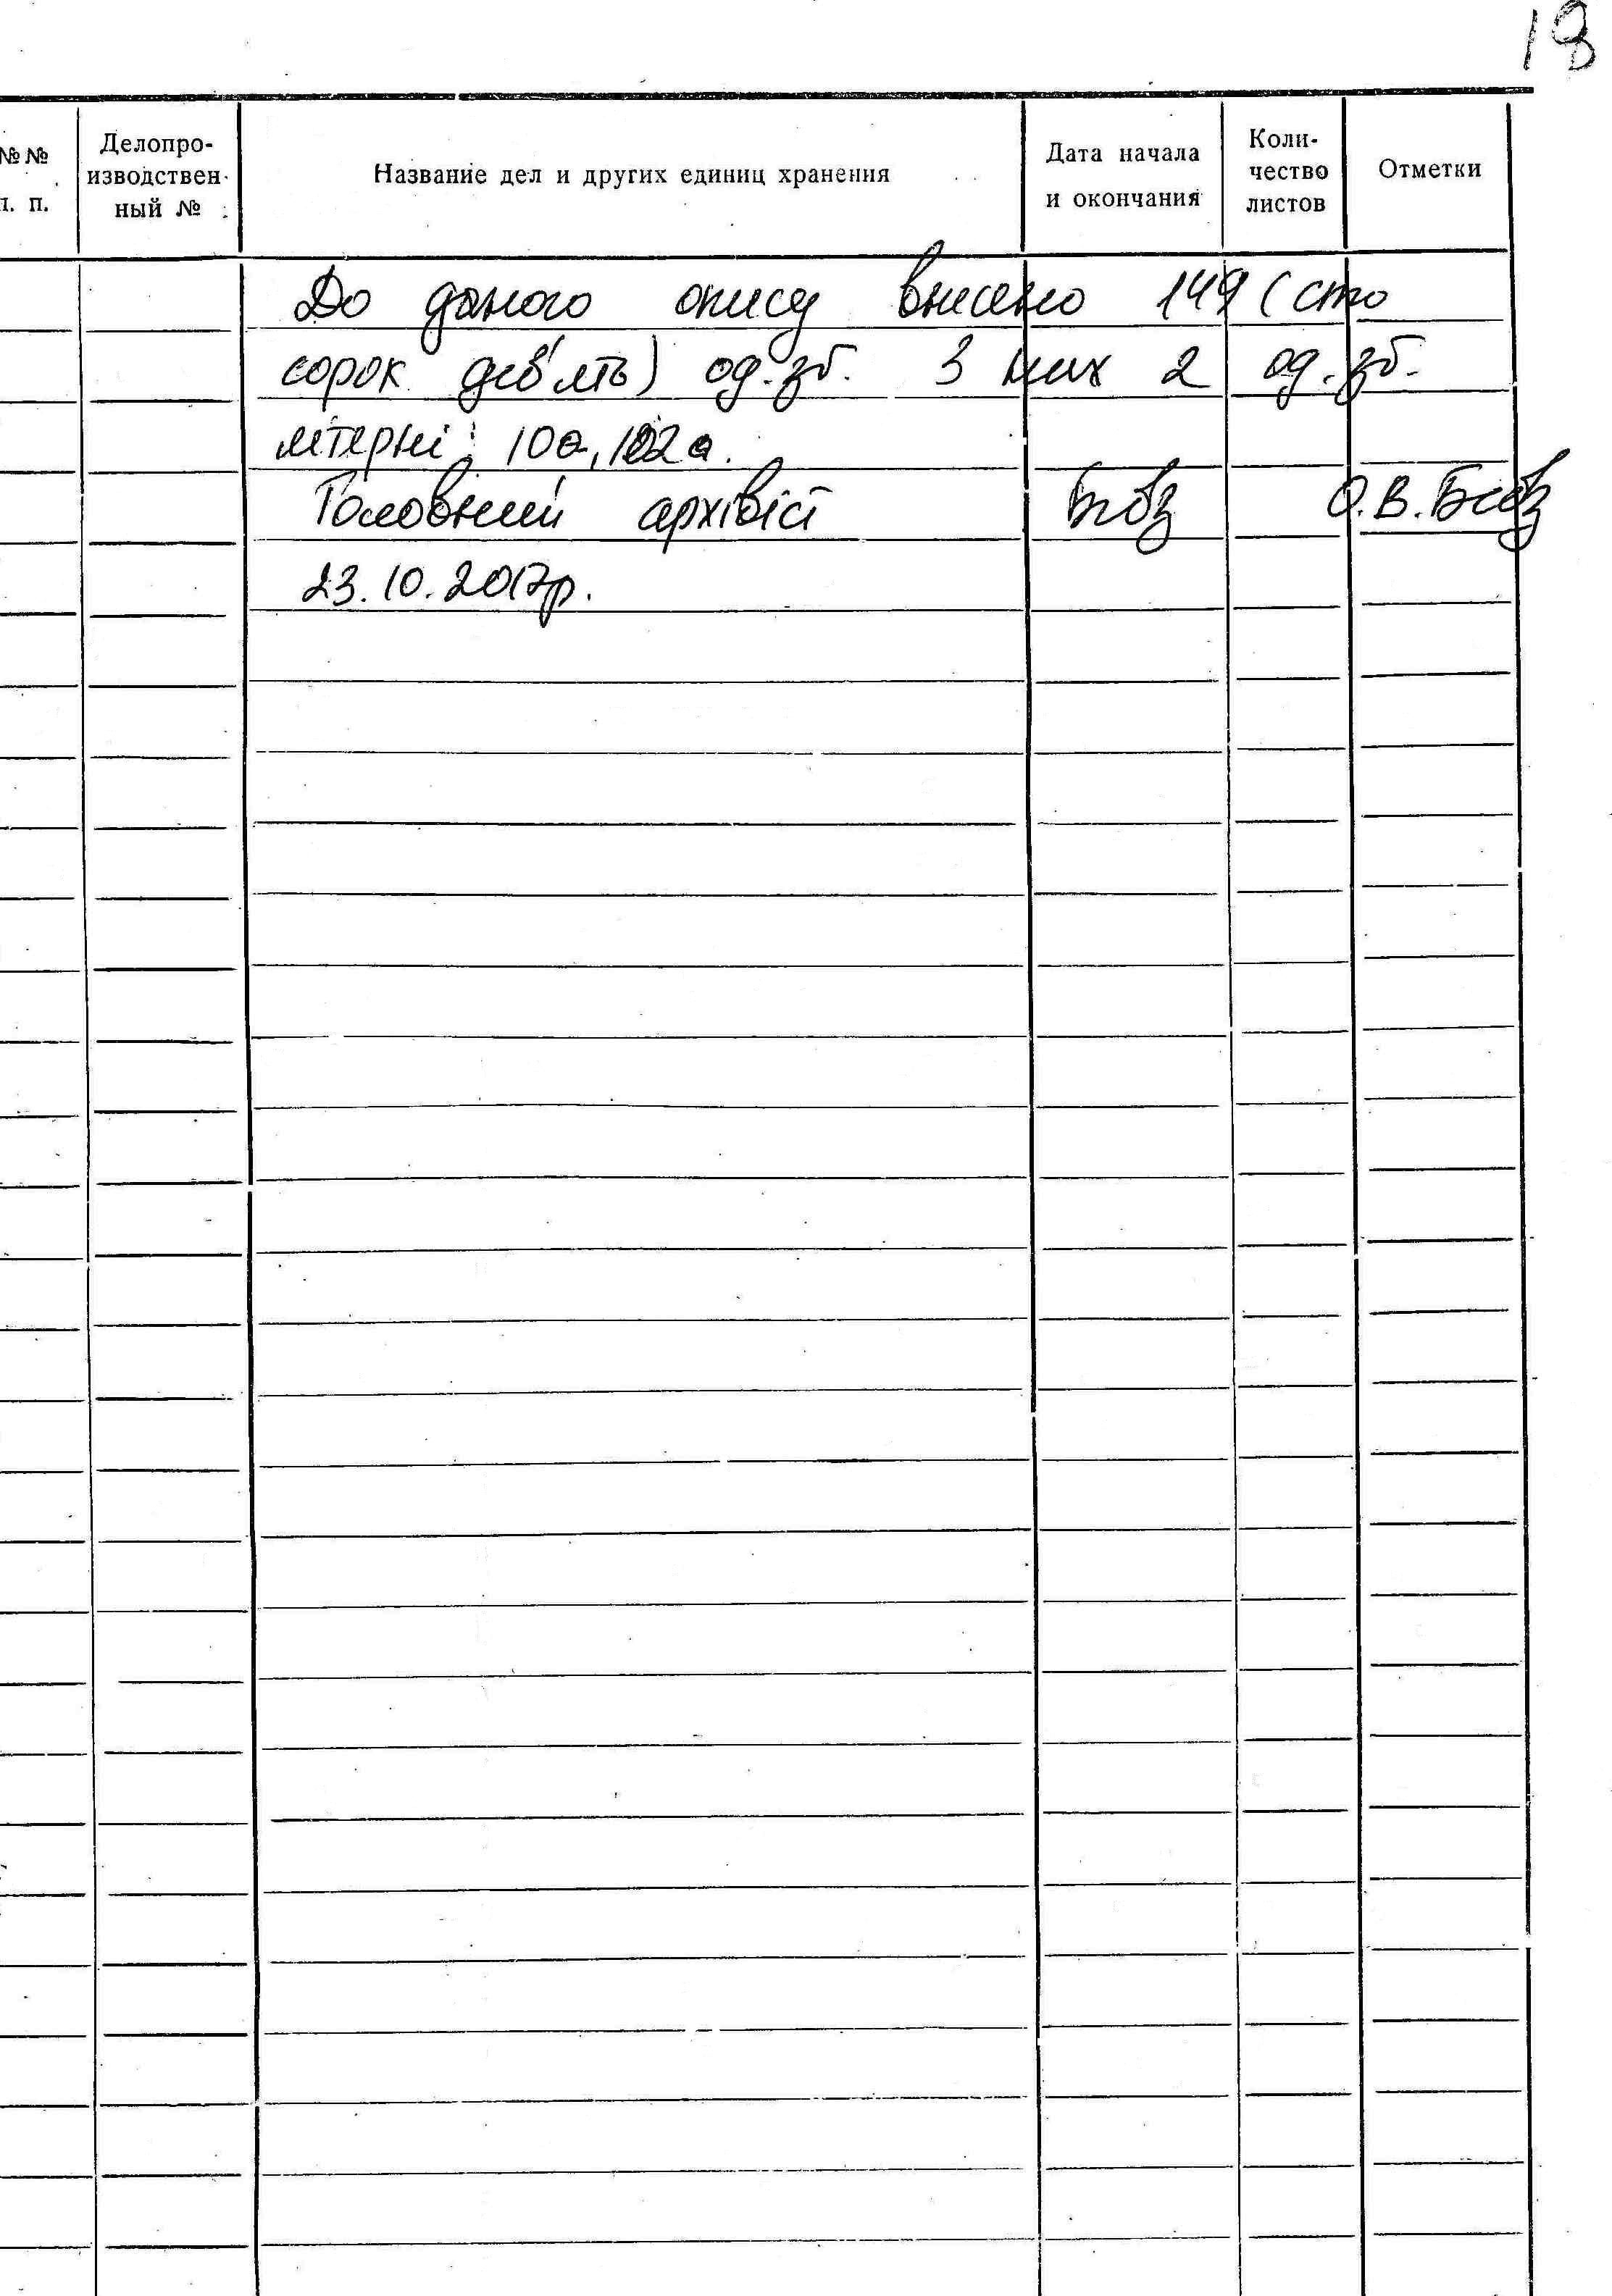 18
№№ п. п.
Делопро-
изводствен-
ный №
Название дел и других единиц хранения
Дата начала
и окончания
Коли-
чество
листов
Отметки
До даного опису внесено 149 (сто
сорок дев'ять) од. зб. З них 2 од. зб.
літерні: 10а, 102а.
Головний архівіст О.В.
23.10.2017р.